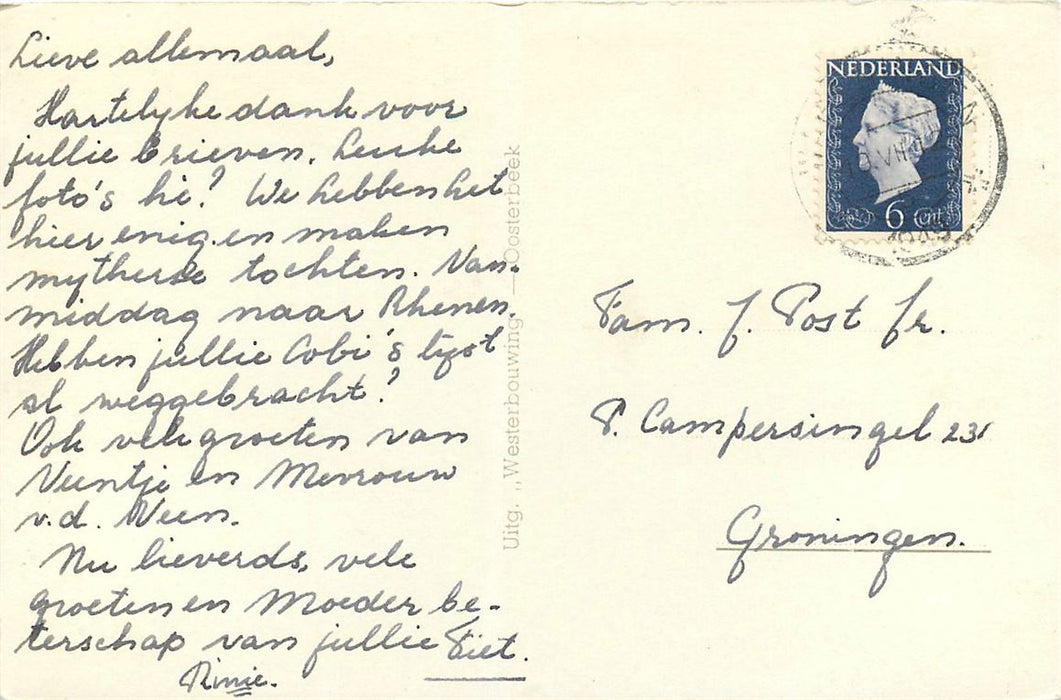 Lieve allemaal,
Hartelyke dank voor
jullie brieven. Leuke
foto's hè? We hebben het
hier enig en maken
mytherse tochten. Van-
middag naar Rhenen.
Hebben jullie Cobi's lyst
al weggebracht?
Ook vele groeten van
Veentje en Mevrouw
v.d. Veen.
Nu lieverds, vele
groeten en Moeder be-
terschap van jullie Fiet.
Rinie.
Uitg. „Westerbouwing" — Oosterbeek
NEDERLAND
6 cnt
1949
Fam. J. Post Jr.
P. Campersingel 231
Groningen.